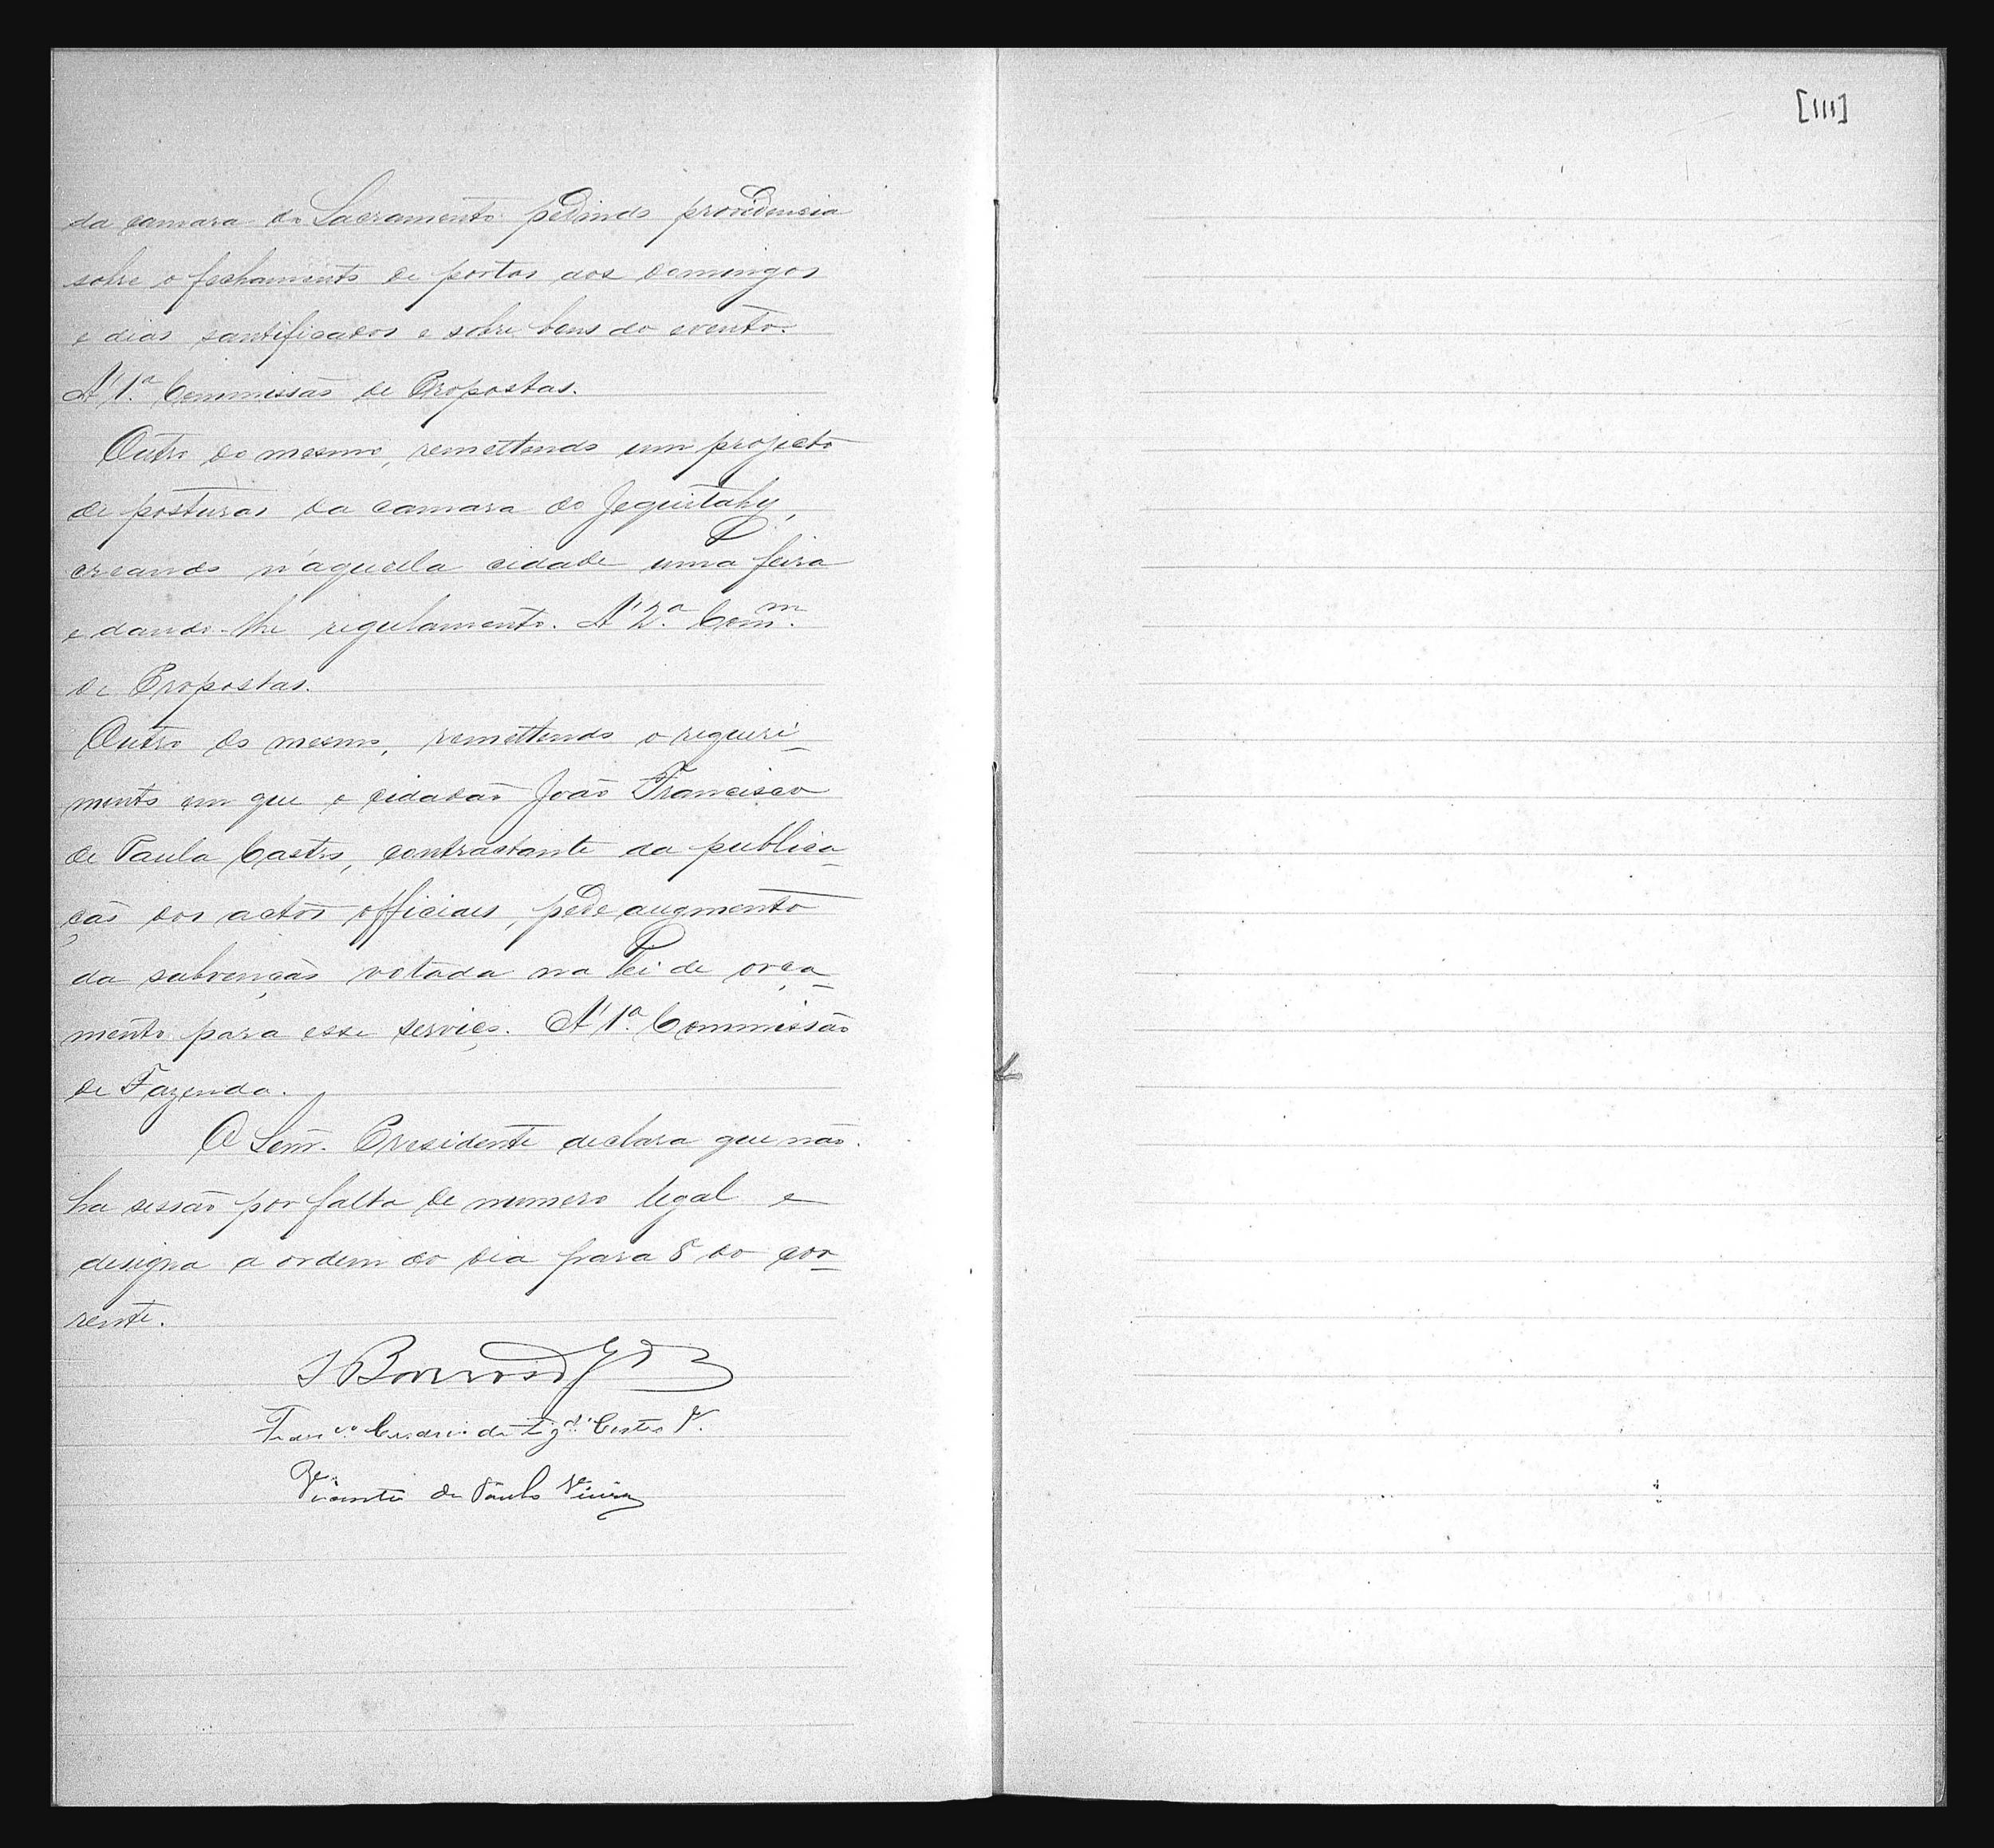 da camara do Sacramento pedindo providencia
sobre o fechamento de portas aos domingos
e dias santificados e sobre bens do evento.
A' 1.ª Commissão de Propostas.
Outro do mesmo, remettendo um projecto
de posturas da camara do Jequitahy,
creando n'aquella cidade uma feira
e dando-lhe regulamento. A' 2.ª Com.m
de Propostas.
Outro do mesmo, remettendo o requeri-
mento em que o cidadão João Francisco
de Paula Castro, contractante da publica-
ção dos actos officiaes, pede augmento
da subvenção votada na lei de orça-
mento para esse serviço. A' 1.ª Commissão
de Fazenda.
O Senr. Presidente declara que não
ha sessão por falta de numero legal e
designa a ordem do dia para 8 do cor-
rente.
Vicente de Paulo Vieira
[111]